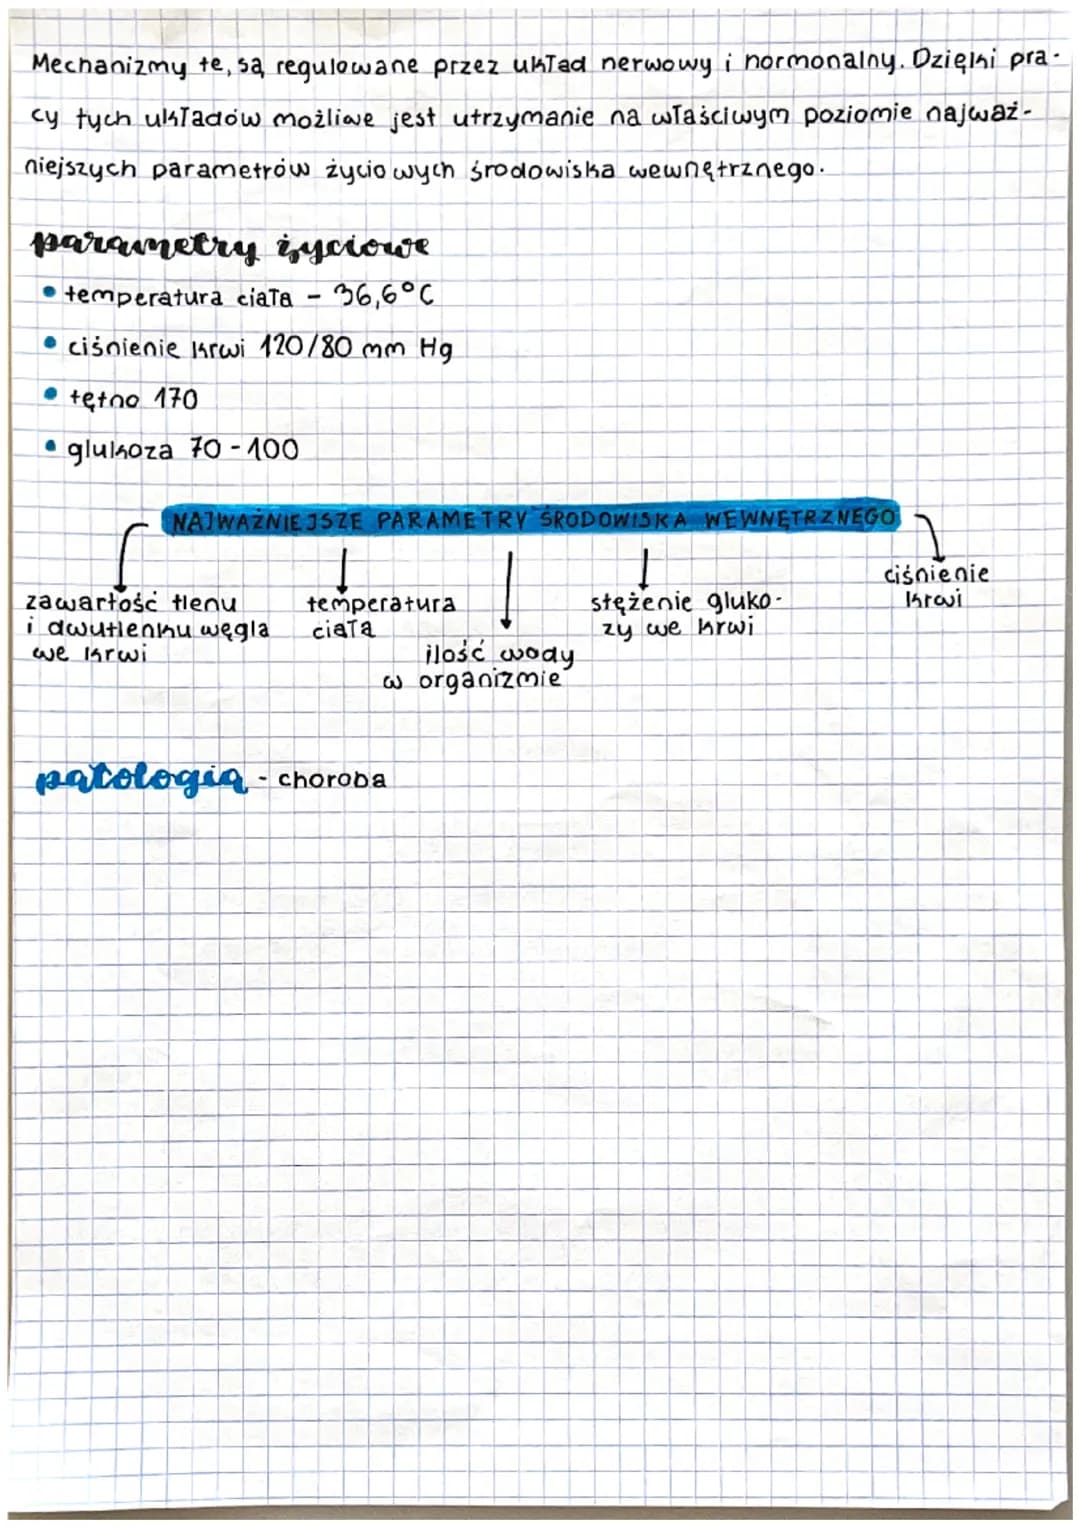 Mechanizmy te, są regulowane przez układ nerwowy i hormonalny. Dzięki pra-
cy tych układów możliwe jest utrzymanie na właściwym poziomie najważ-
niejszych parametrów życiowych środowiska wewnętrznego.
parametry życiowe
• temperatura ciała - 36,6°C
• ciśnienie krwi 120/80 mm Hg
• tętno 170
• glukoza 70-100
NAJWAŻNIEJSZE PARAMETRY ŚRODOWISKA WEWNĘTRZNEGO
zawartość tlenu
i dwutlenku węgla
we krwi
temperatura
ciała
ilość wody
w organizmie
stężenie gluko-
zy we krwi
ciśnienie
krwi
patologia - choroba